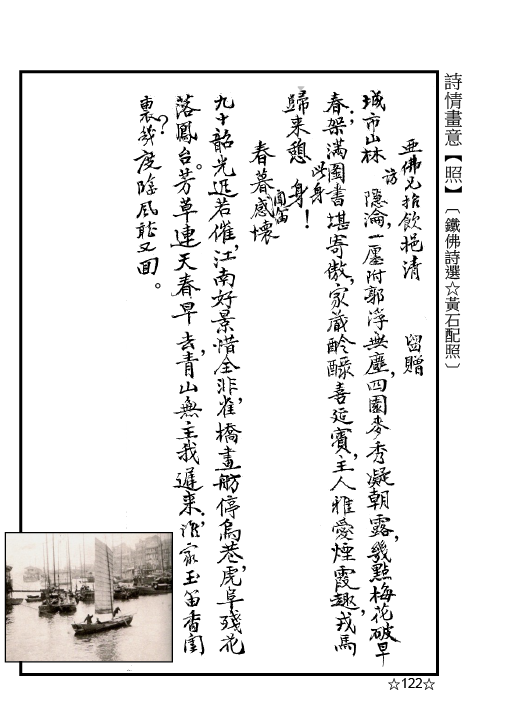 詩情畫意【照】〔鐵佛詩選☆黃石配照〕
亞佛兄招飲挹清 留贈
城市山林訪隱淪,一廛附郭浮無塵,四園麥秀凝朝露,幾點梅花破早
春;架滿圖書堪寄傲,家藏醽醁喜延賓,主人雅愛煙霞趣,戎馬
歸來憩此身!
春暮感懷
九十韶光近若催,江南好景惜全非,雀橋畫舫停烏巷,虎阜殘花
落鳳台。芳草連天春早去,青山無主我遲來,誰家玉笛香閨
裏?幾度隨風龍又回。
☆122☆